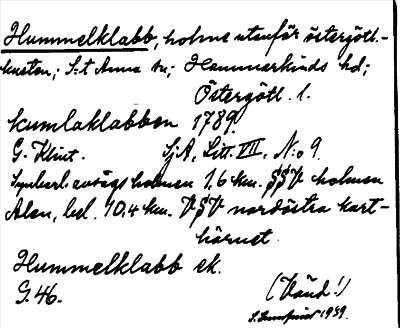 Hummelklabb, holme utanför östergötl.-
kusten; S:t Anna sn; Hammarkinds hd;
Östergötl. l.
kumlaklabben 1789.
G. Klint. SjA, Litt. VII, N:o 9.
Synbarl. avsågs holmen 1,6 km. SSV holmen
Alen, bel. 10,4 km. VSV nordöstra kart-
hörnet.
Hummelklabb ek.
G. 46.
(Vänd!)
1939.